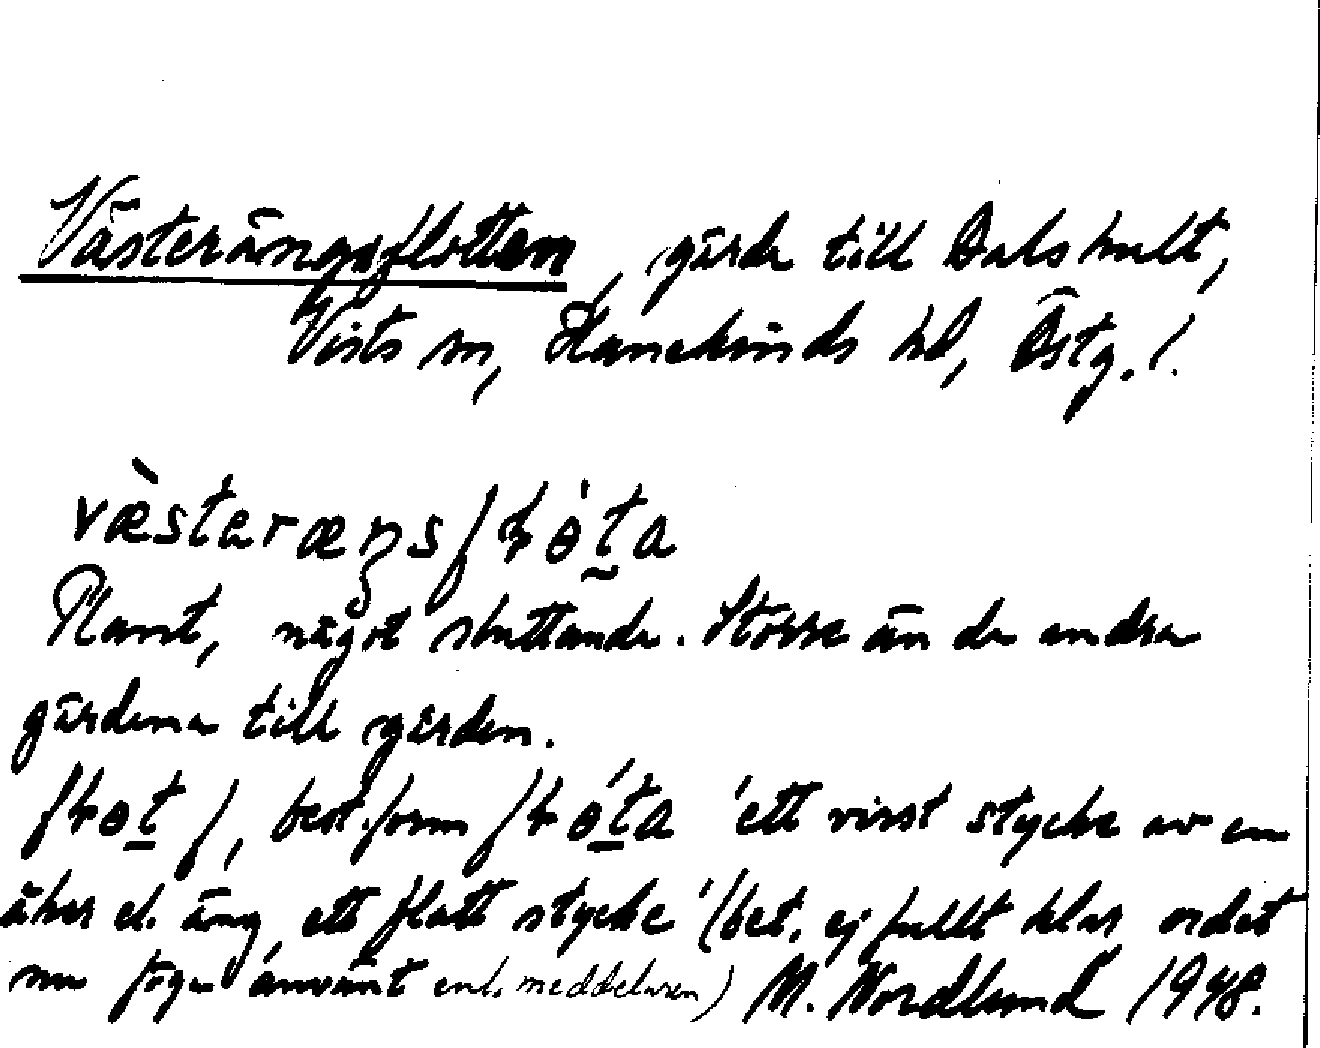 Västerängsflotten, gärde till Dalshult,
Vists sn, Hanekinds hd, Östg. l.
væ̀stəræŋsfɫɵ́ta
Plant, något sluttande. Större än de andra
gärdena till gården.
fɫɵt f, best. form fɫɵ́ta 'ett visst stycke av en
åker el. äng, ett flatt stycke' (bet. ej fullt klar, ordet
nu föga använt enl. meddelaren) M. Nordlund 1948.